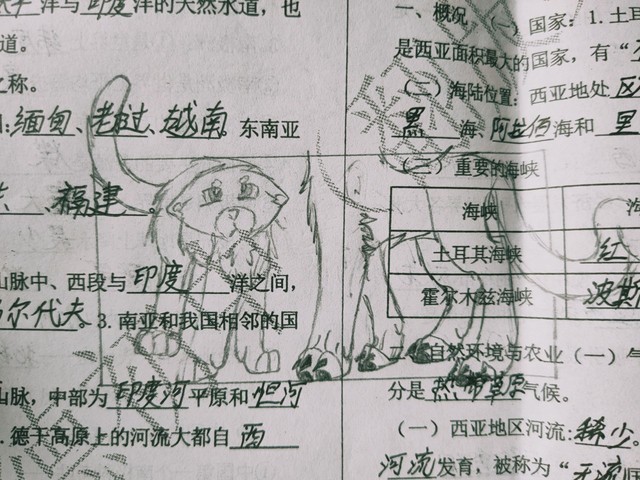 洋与印度洋的天然水道，也
道。
之称。
缅甸、老挝、越南。东南亚
福建。
山脉中、西段与印度洋之间，
马尔代夫。3.南亚和我国相邻的国
山脉，中部为印度河平原和恒河
德干高原上的河流大都自西
一、概况（一）国家：1.土耳
是西亚面积最大的国家，有“
（二）海陆位置：西亚地处
黑海、阿拉伯海和里
（三）重要的海峡
海峡
土耳其海峡 红
霍尔木兹海峡 波斯
二、自然环境与农业（一）气
分是热带草原气候。
（一）西亚地区河流：稀少。
河流发育，被称为“无流国